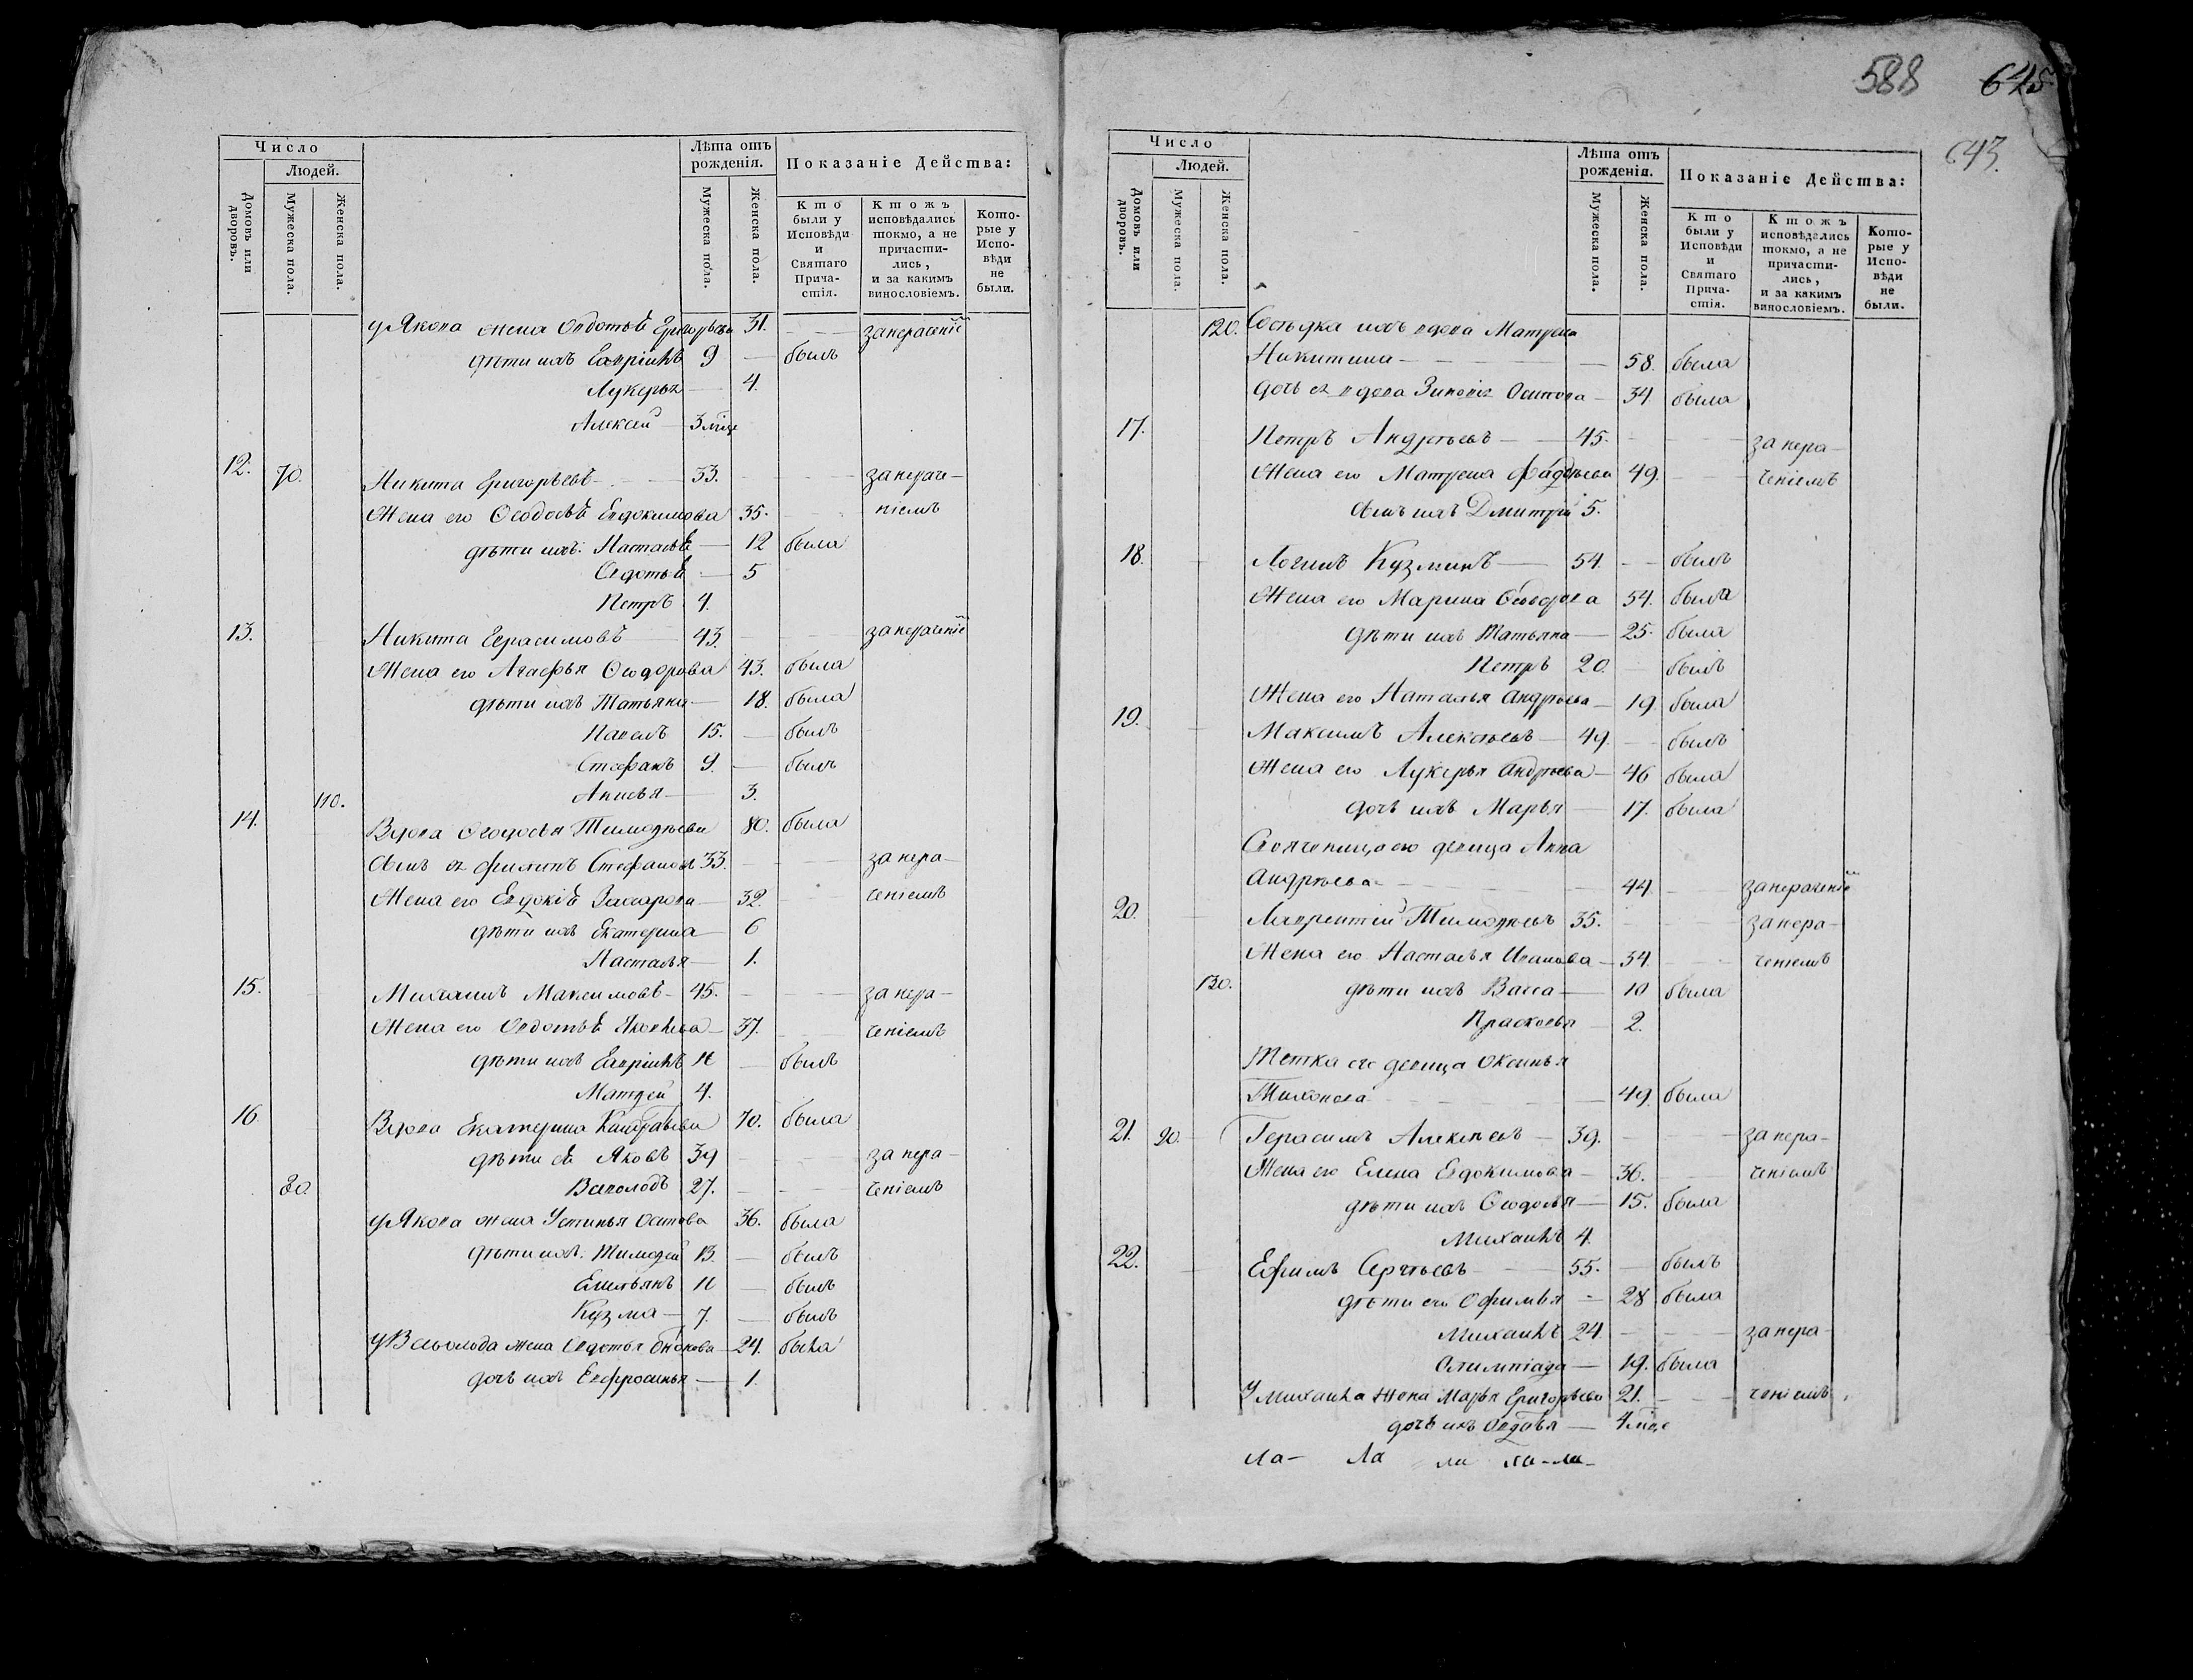 588 645
643.
Число
Людей.
Домовъ или дворовъ.
Мужеска пола.
Женска пола.
Лѣта отъ рожденія.
Мужеска пола.
Женска пола.
Показаніе Действа:
Кто были у Исповѣди и Святаго Прича-стія.
Ктожъ исповѣдались токмо, а не причасти-лись, и за какимъ винословіемъ.
Кото-рые у Испо-вѣди не были.
у Якова жена Овдотья Григорьева 31.
дѣти ихъ Гавріилъ 9 — былъ
Лукерья — 4.
Алексѣй — 3 мѣс
12. 70. Никита Григорьевъ — 33. — за нераче-
Жена его Ѳеодосья Евдокимова 35. ніемъ
дѣти ихъ: Настасья — 12 была
Овдотья — 5
Петръ 4.
13. Никита Герасимовъ — 43.
Жена его Агафья Ѳеодорова 43. была
дѣти ихъ Татьяна — 18. была
Павелъ 15. — былъ
Стефанъ 9. — былъ
110. Анисья — 3.
14. Вдова Ѳеодосья Тимоѳеева 80. была
сынъ ея Филипъ Стефановъ 33. — за нера-
Жена его Евдокія Захарова — 32. ченіемъ
дѣти ихъ Екатерина 6
Настасья — 1.
15. Михаилъ Максимовъ — 45. — за нера-
Жена его Овдотья Яковлева — 37. ченіемъ
дѣти ихъ Гавріилъ 11 — былъ
Матѳей 4.
16. Вдова Екатерина 70. была
дѣти ея Яковъ 39 — за нера-
80. Всеволодъ 27. — ченіемъ
у Якова жена Устинья Осипова 36. была
дѣти ихъ: Тимоѳей 13. — былъ
Емельянъ 11 — былъ
Кузма — 7. — былъ
у Всеволода жена Овдотья 24. была
дочь ихъ Евфросинья — 1.
Число
Людей.
Домовъ или дворовъ.
Мужеска пола.
Женска пола.
Лѣта отъ рожденія.
Мужеска пола.
Женска пола.
Показаніе Действа:
Кто были у Исповѣди и Святаго Прича-стія.
Ктожъ исповѣдались токмо, а не причасти-лись, и за какимъ винословіемъ.
Кото-рые у Испо-вѣди не были.
120. Сосѣдка ихъ вдова Матрена
Никитина — 58. была
дочь ея вдова Зиновія Осипова — 34. была
17. Петръ Андрѣевъ — 45. — за нера-
Жена его Матрена Фадѣева 49. ченіемъ
сынъ ихъ Дмитрій 5.
18. Логинъ Кузминъ — 54. — былъ
Жена его Марина Ѳеодорова 54. была
дѣти ихъ Татьяна — 25. была
Петръ 20. — былъ
Жена его Наталья Андрѣева — 19. была
19. Максимъ Алексѣевъ — 49. — былъ
Жена его Лукерья Андрѣева — 46 была
дочь ихъ Марья — 17. была
Своячиница его девица Анна
Андрѣева — 44.
20. Лаврентій Тимоѳеевъ 35. — за нера-
Жена его Настасья Иванова — 34. ченіемъ
130. дѣти ихъ Васса — 10 была
Прасковья 2.
Тетка его девица Оксинья
Тихонова — 49. была
21. 90. Герасимъ Алексѣевъ — 39. — за нера-
Жена его Елена Евдокимова — 36. ченіемъ
дѣти ихъ Ѳеодосья — 15. была
Михаилъ 4.
22. Ефимъ Сергѣевъ — 55. — былъ
дѣти его Офимья — 28 была
Михаилъ 24. — за нера-
Олимпіада — 19. была
У Михаила жена Марья Григорьева 21. — ченіемъ
дочь ихъ — 4 мѣс